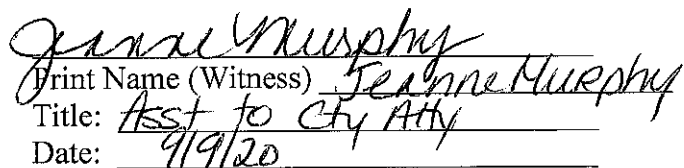 Jeanne Murphy
Print Name (Witness) Jeanne Murphy
Title: Asst to Cty Atty
Date: 9/9/20